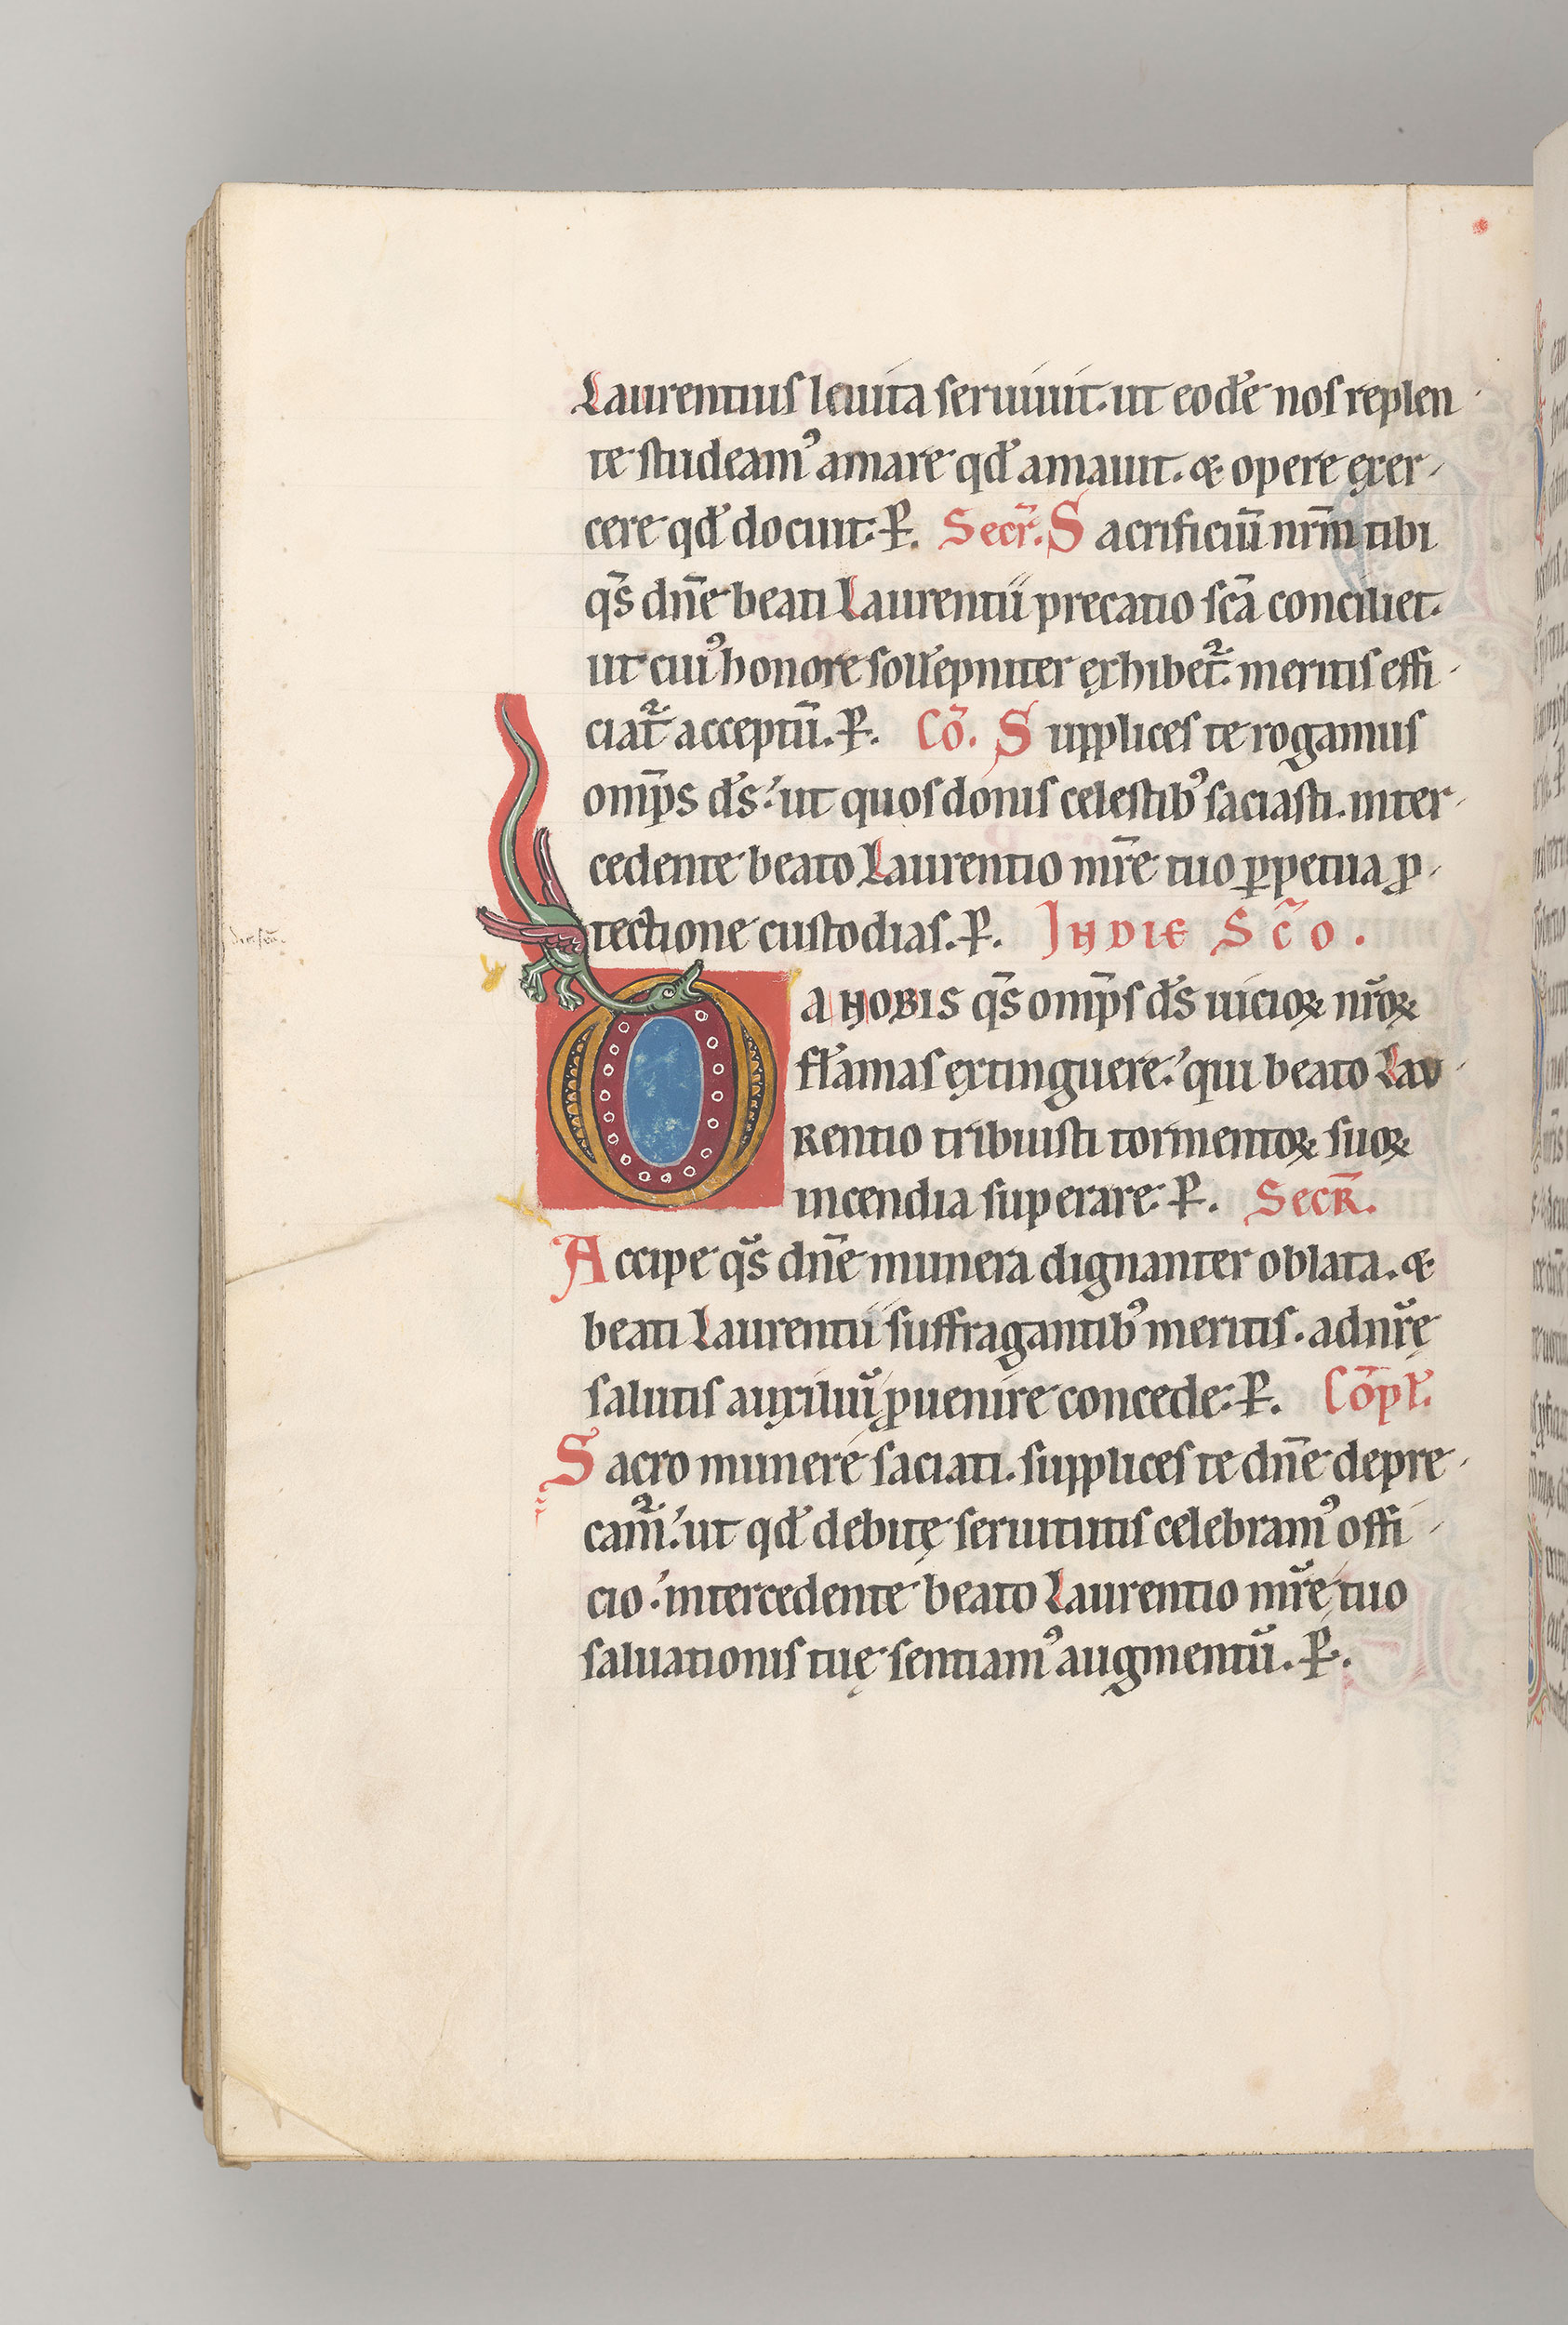 Laurentius leuita seruiuit. ut eodē nos replen
te studeamꝰ amare qd̄ amauit. & opere exer-
cere qd̄ docuit. P̄. Secr̄. Sacrificiū nr̄m tibi
qs̄ dn̄e beati Laurentii precatio sc̄a conciliet.
ut cuiꝰ honore sollēpniter exhibet᷑. meritis effi-
ciat᷑ acceptū. P̄. Cō. Supplices te rogamus
omp̄s ds̄. ut quos donis celestibꝰ saciasti. inter-
cedente beato Laurentio mr̄e tuo ꝑpetua ꝓ-
tectione custodias. P̄. IN DIE SC̄O.
DA NOBIS qs̄ omp̄s ds̄ uicioꝝ nr̄oꝝ
flāmas extinguere. qui beato Lau-
rentio tribuisti tormentoꝝ suoꝝ
incendia superare. P̄. SECR̄.
Accipe qs̄ dn̄e munera dignanter oblata. &
beati Laurentii suffragantibꝰ meritis. ad nr̄ę
salutis auxiliū ꝓuenire concede. P̄. Cōpl̄.
Sacro munere saciati. supplices te dn̄e depre-
cam᷑. ut qd̄ debitę seruitutis celebramꝰ offi-
cio. intercedente beato Laurentio mr̄e tuo
saluationis tuę sentiamꝰ augmentū. P̄.